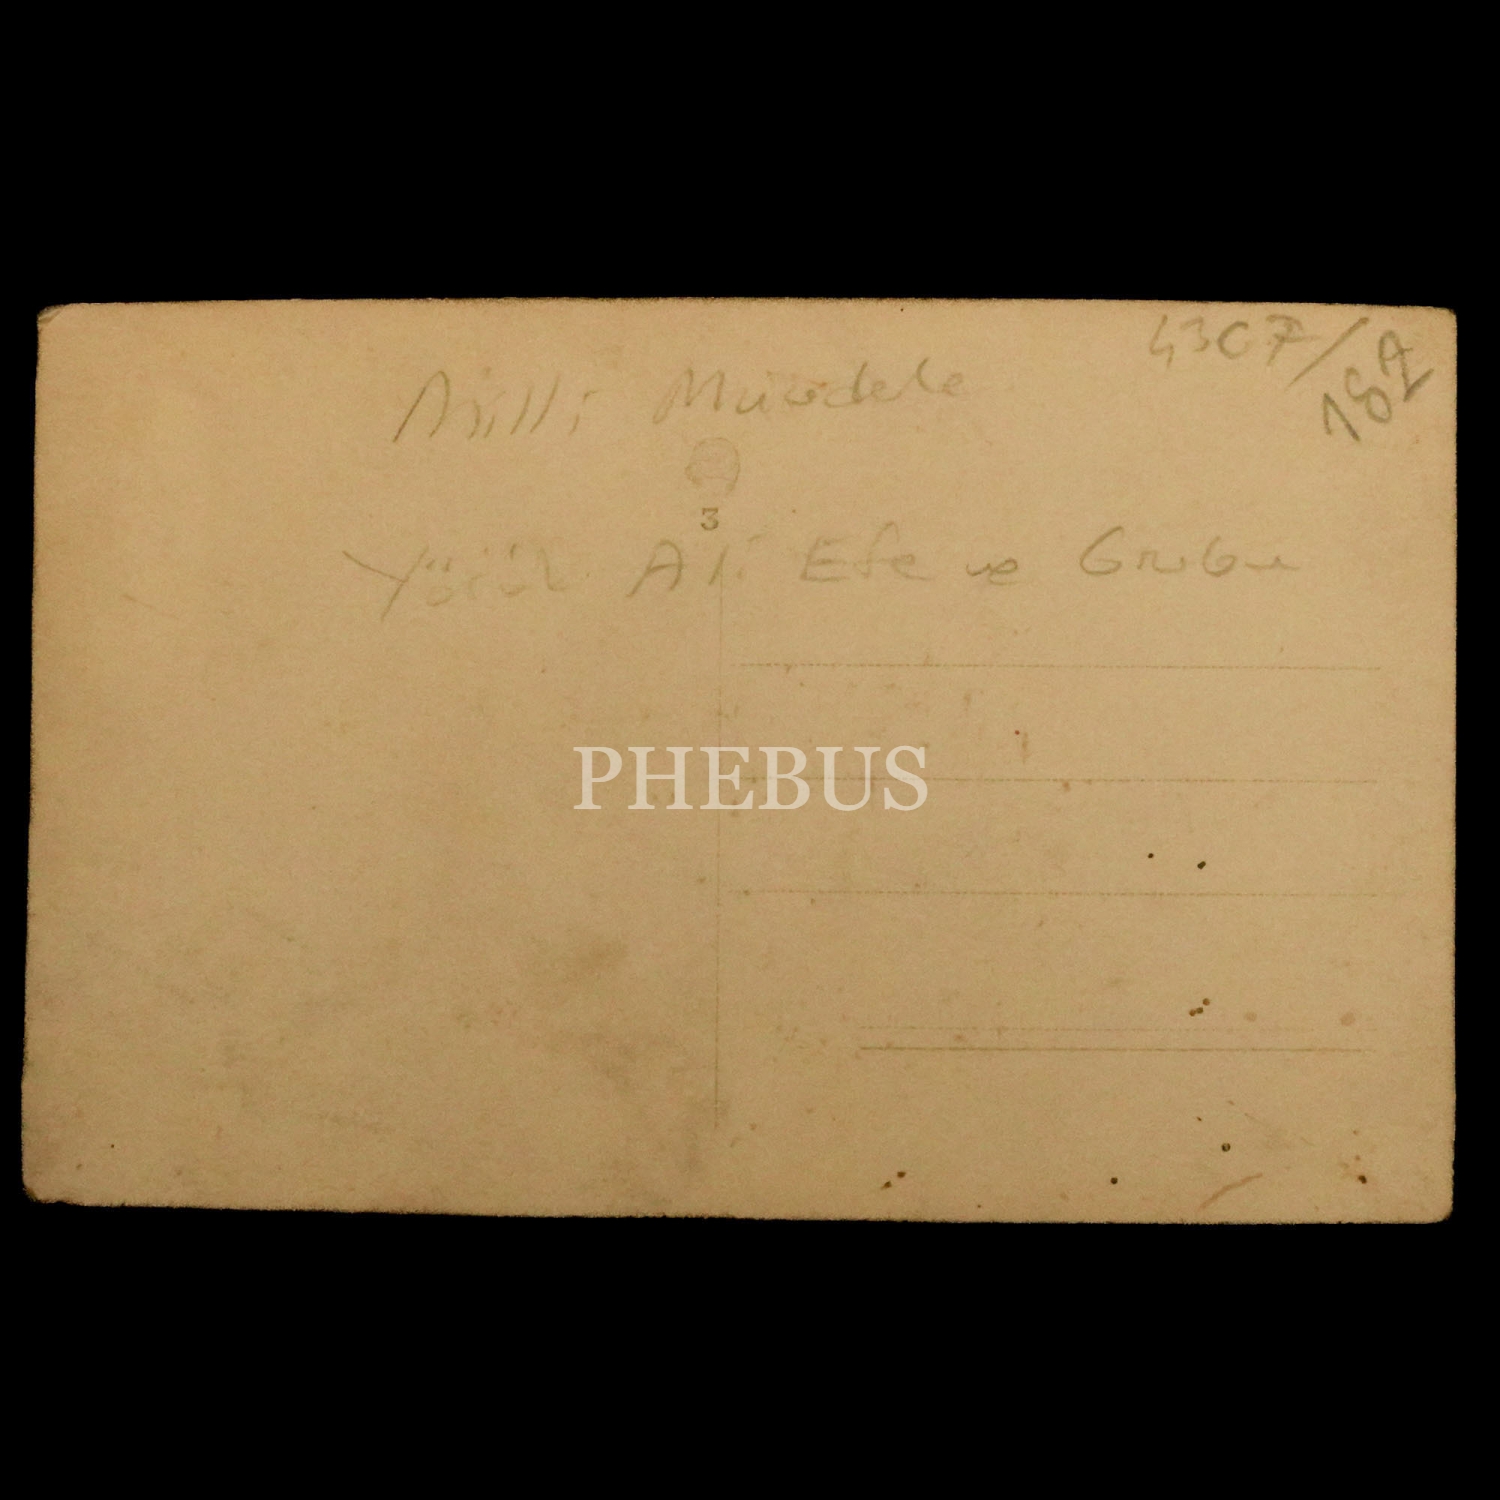 4307/
187
Milli Mücadele
3
Yörük Ali Efe ve Grubu
PHEBUS